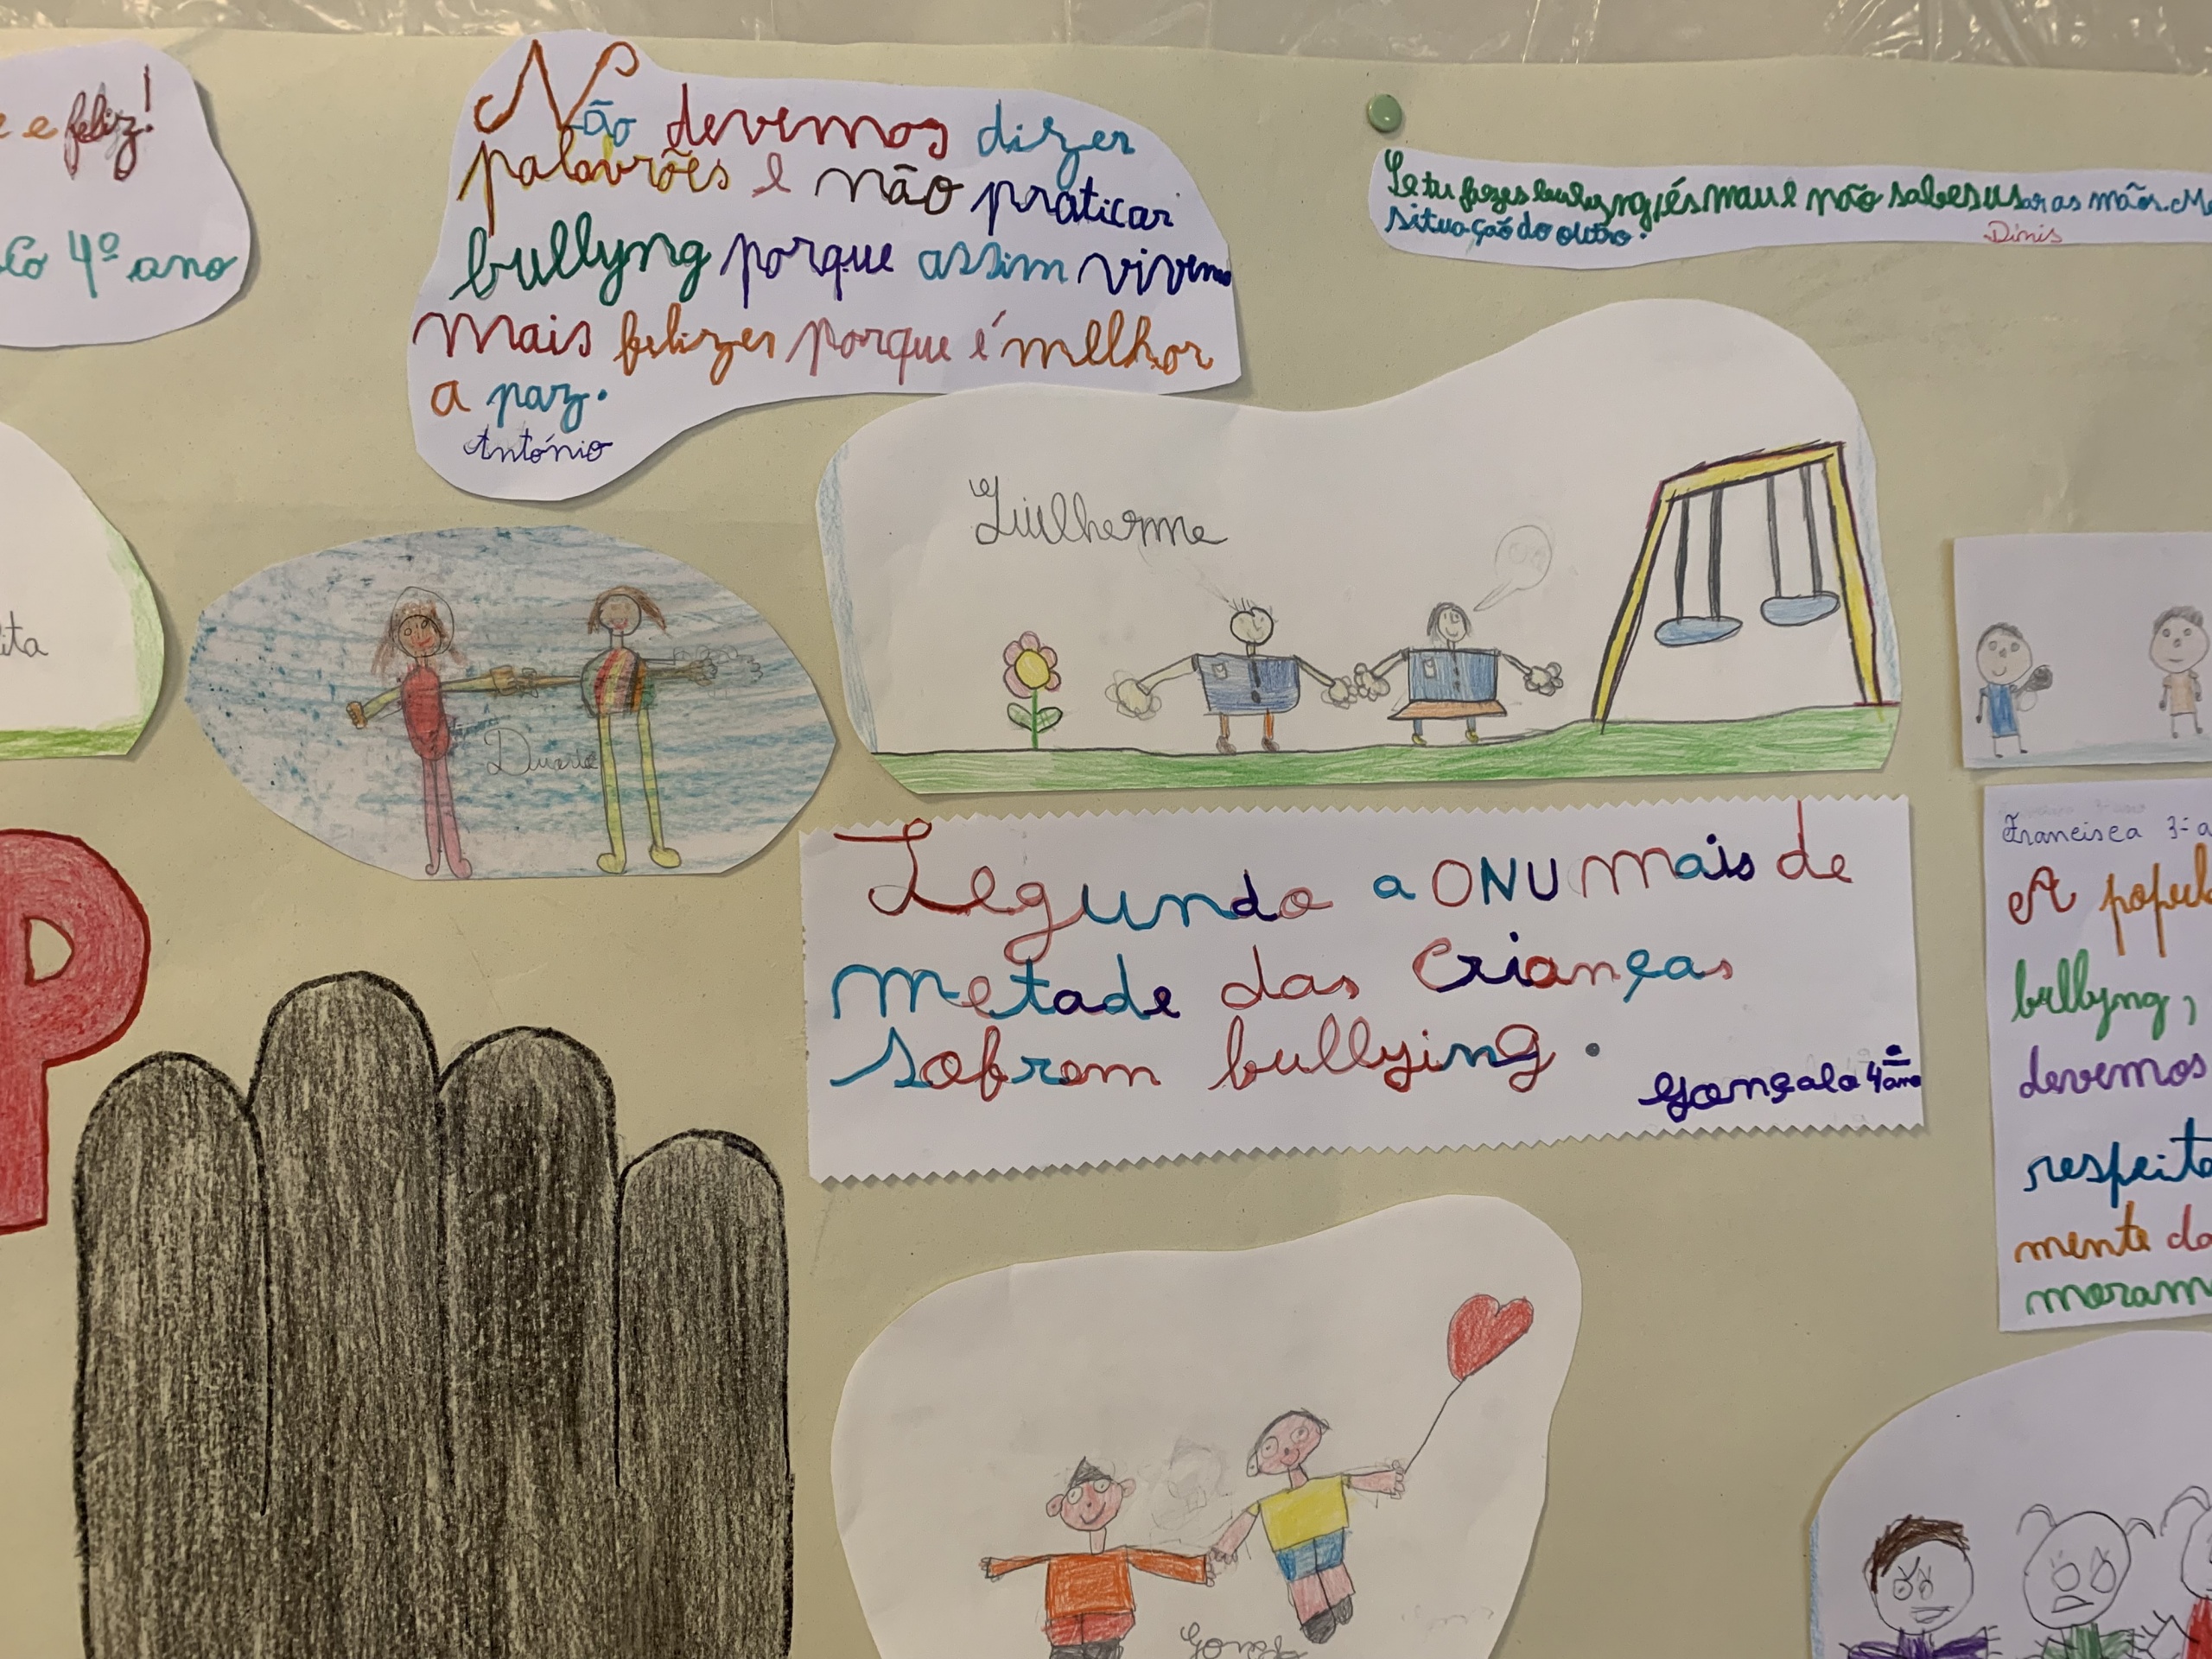 e feliz!
4º ano
Não devemos dizer
palavrões e não praticar
bullyng porque assim vivemos
mais felizes porque é melhor
a paz.
António
Se tu fazes bullyng, és mau e não sabes usar as mãos.
situação do outro.
Dinis
Guilherme
ita
Duarte
P
Segundo a ONU mais de
metade das Crianças
sofrem bullying.
Gonçalo 4º ano
Francisca 3º a
A
bullyng,
devemos
respeita
mente
moram